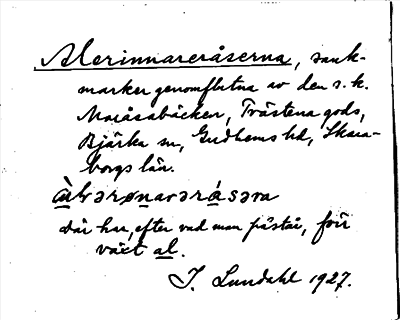 Alerinnareråserna, sank-
marker genomflutna av den s.k.
Maråsabäcken, Trästena gods,
Bjärka sn, Gudhems hd, Skara-
borgs län.
Där har, efter vad man påstår, förr
växt al.
J. Lundahl 1927.